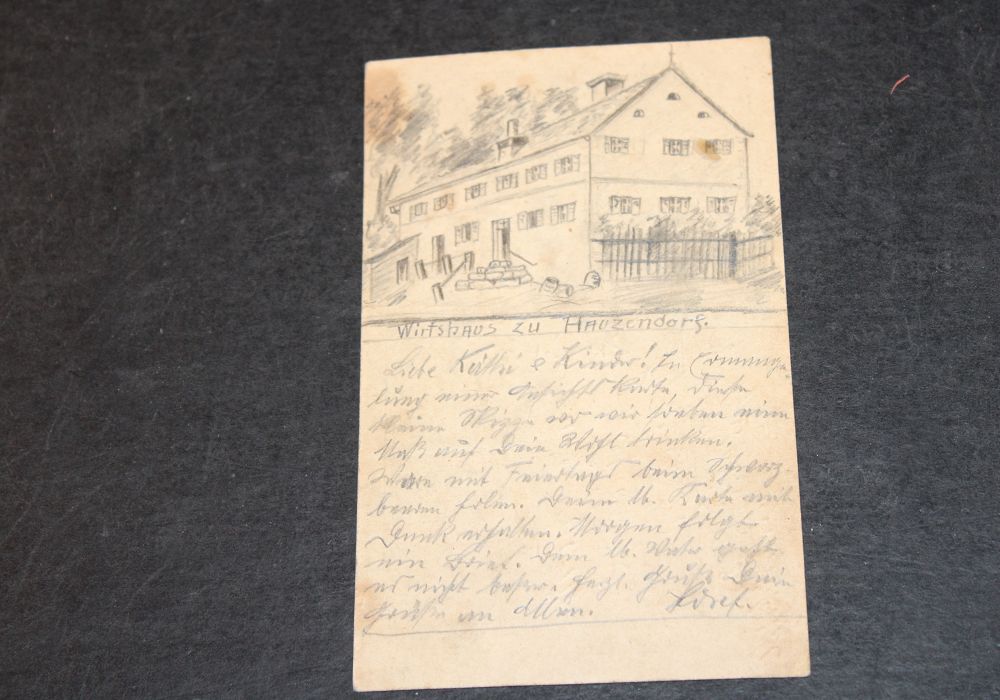 Wirtshaus zu Hauzendorf.
Liebe Käthi & Kinder! In Ermange-
lung einer Ansichts Karte, diese
kleine Skizze wo wir soeben eine
Maß auf Dein Wohl trinken.
Ware mit Feiertags beim Schwarz-
beeren holen. Deine lb. Karte mit
Dank erhalten. Morgen folgt
ein Brief. Dem lb. Vater geht
es nicht besser. Herzl. Gruß Dein
Grüße an Allen. Josef.